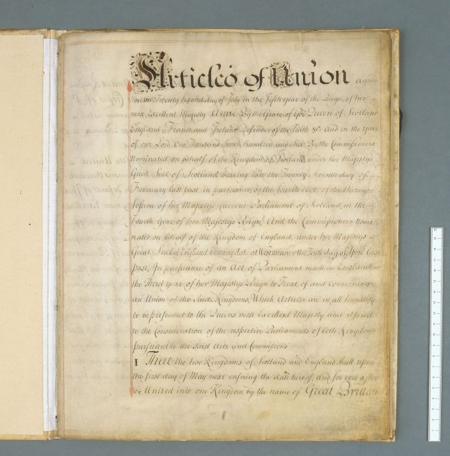 Articles of Union Agreed
on the Twenty Second day of July in the Fifth year of the Reign of her
most Excellent Majesty Anne By the grace of God Queen of Scotland
England France and Ireland Defender of the Faith &c And in the year
of our Lord One thousand Seven hundred and Six By the Commissioners
Nominated on behalf of the Kingdom of Scotland under her Majestys
Great Seal of Scotland bearing date the Twenty Seventh day of
February last past in pursuance of the fourth Act of the third
Session of her Majestys Current Parliament of Scotland in the
fourth year of her Majestys Reign And the Commissioners Nomi
nated on behalf of the Kingdom of England under her Majestys
Great Seal of England bearing date at Westminster the Tenth day of April last
past In pursuance of an Act of Parliament made in England
the Third year of her Majestys Reign to Treat of and concerning
an Union of the Said Kingdoms Which Articles are in all humility
to be presented to the Queens most Excellent Majesty and offered
to the Consideration of the respective Parliaments of both Kingdoms
pursuant to the Said Acts and Commissions
I That the two Kingdoms of Scotland and England shall upon
the first day of May next ensuing the date hereof, and for ever after
be United into one Kingdom by the name of Great Brittain